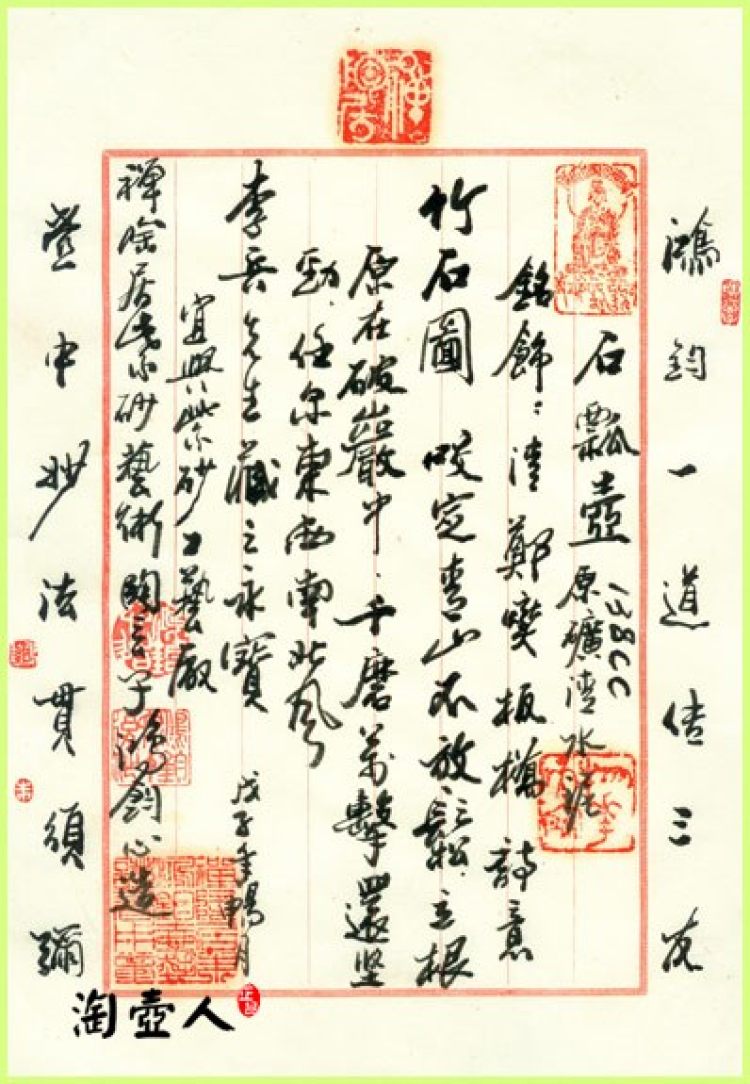 鴻鈞一道传三友
石瓢壺 原礦清水泥 138CC
銘飾：清鄭燮板橋詩意
竹石圖 咬定青山不放鬆.立根
原在破巖中.千磨萬擊還坚
勁.任尔東西南北风
李兵先生藏之永寶 戊子年暢月
宜興紫砂工藝廠
禪 居紫砂藝術陶 子鴻鈞心造
壺中妙法貫須彌
淘壺人